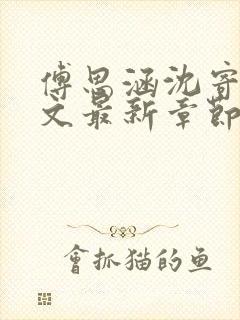 傅思涵沈寄
文最新章節
會抓猫的鱼